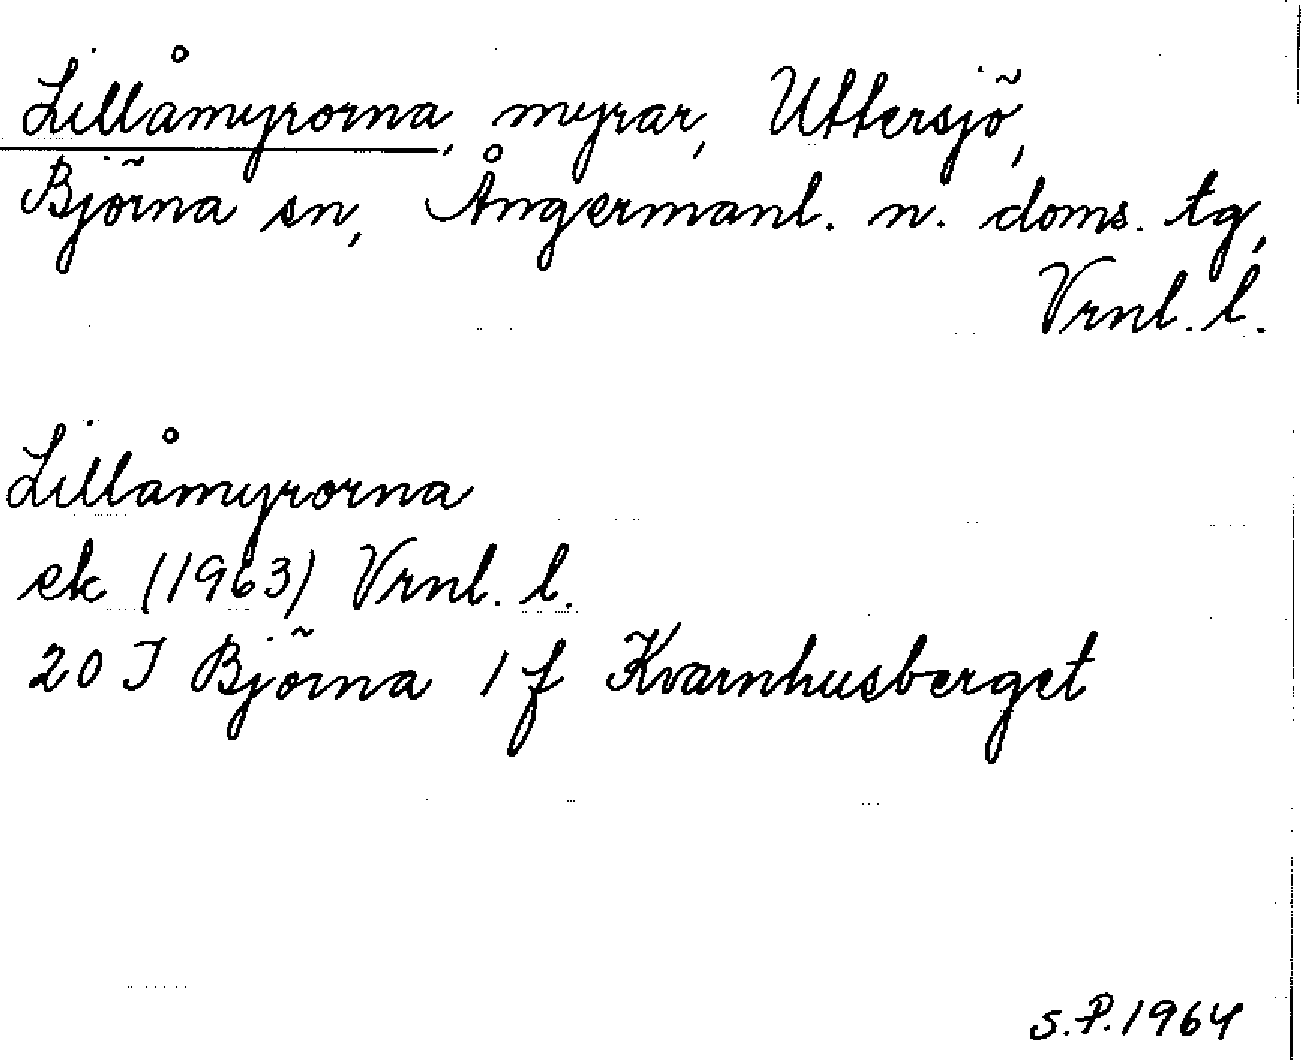 Lillåmyrorna, myrar, Uttersjö,
Björna sn, Ångermanl. n. doms. tg,
Vrnl. l.
Lillåmyrorna
ek (1963) Vrnl. l.
20 I Björna 1 f Kvarnhusberget
S.P. 1964